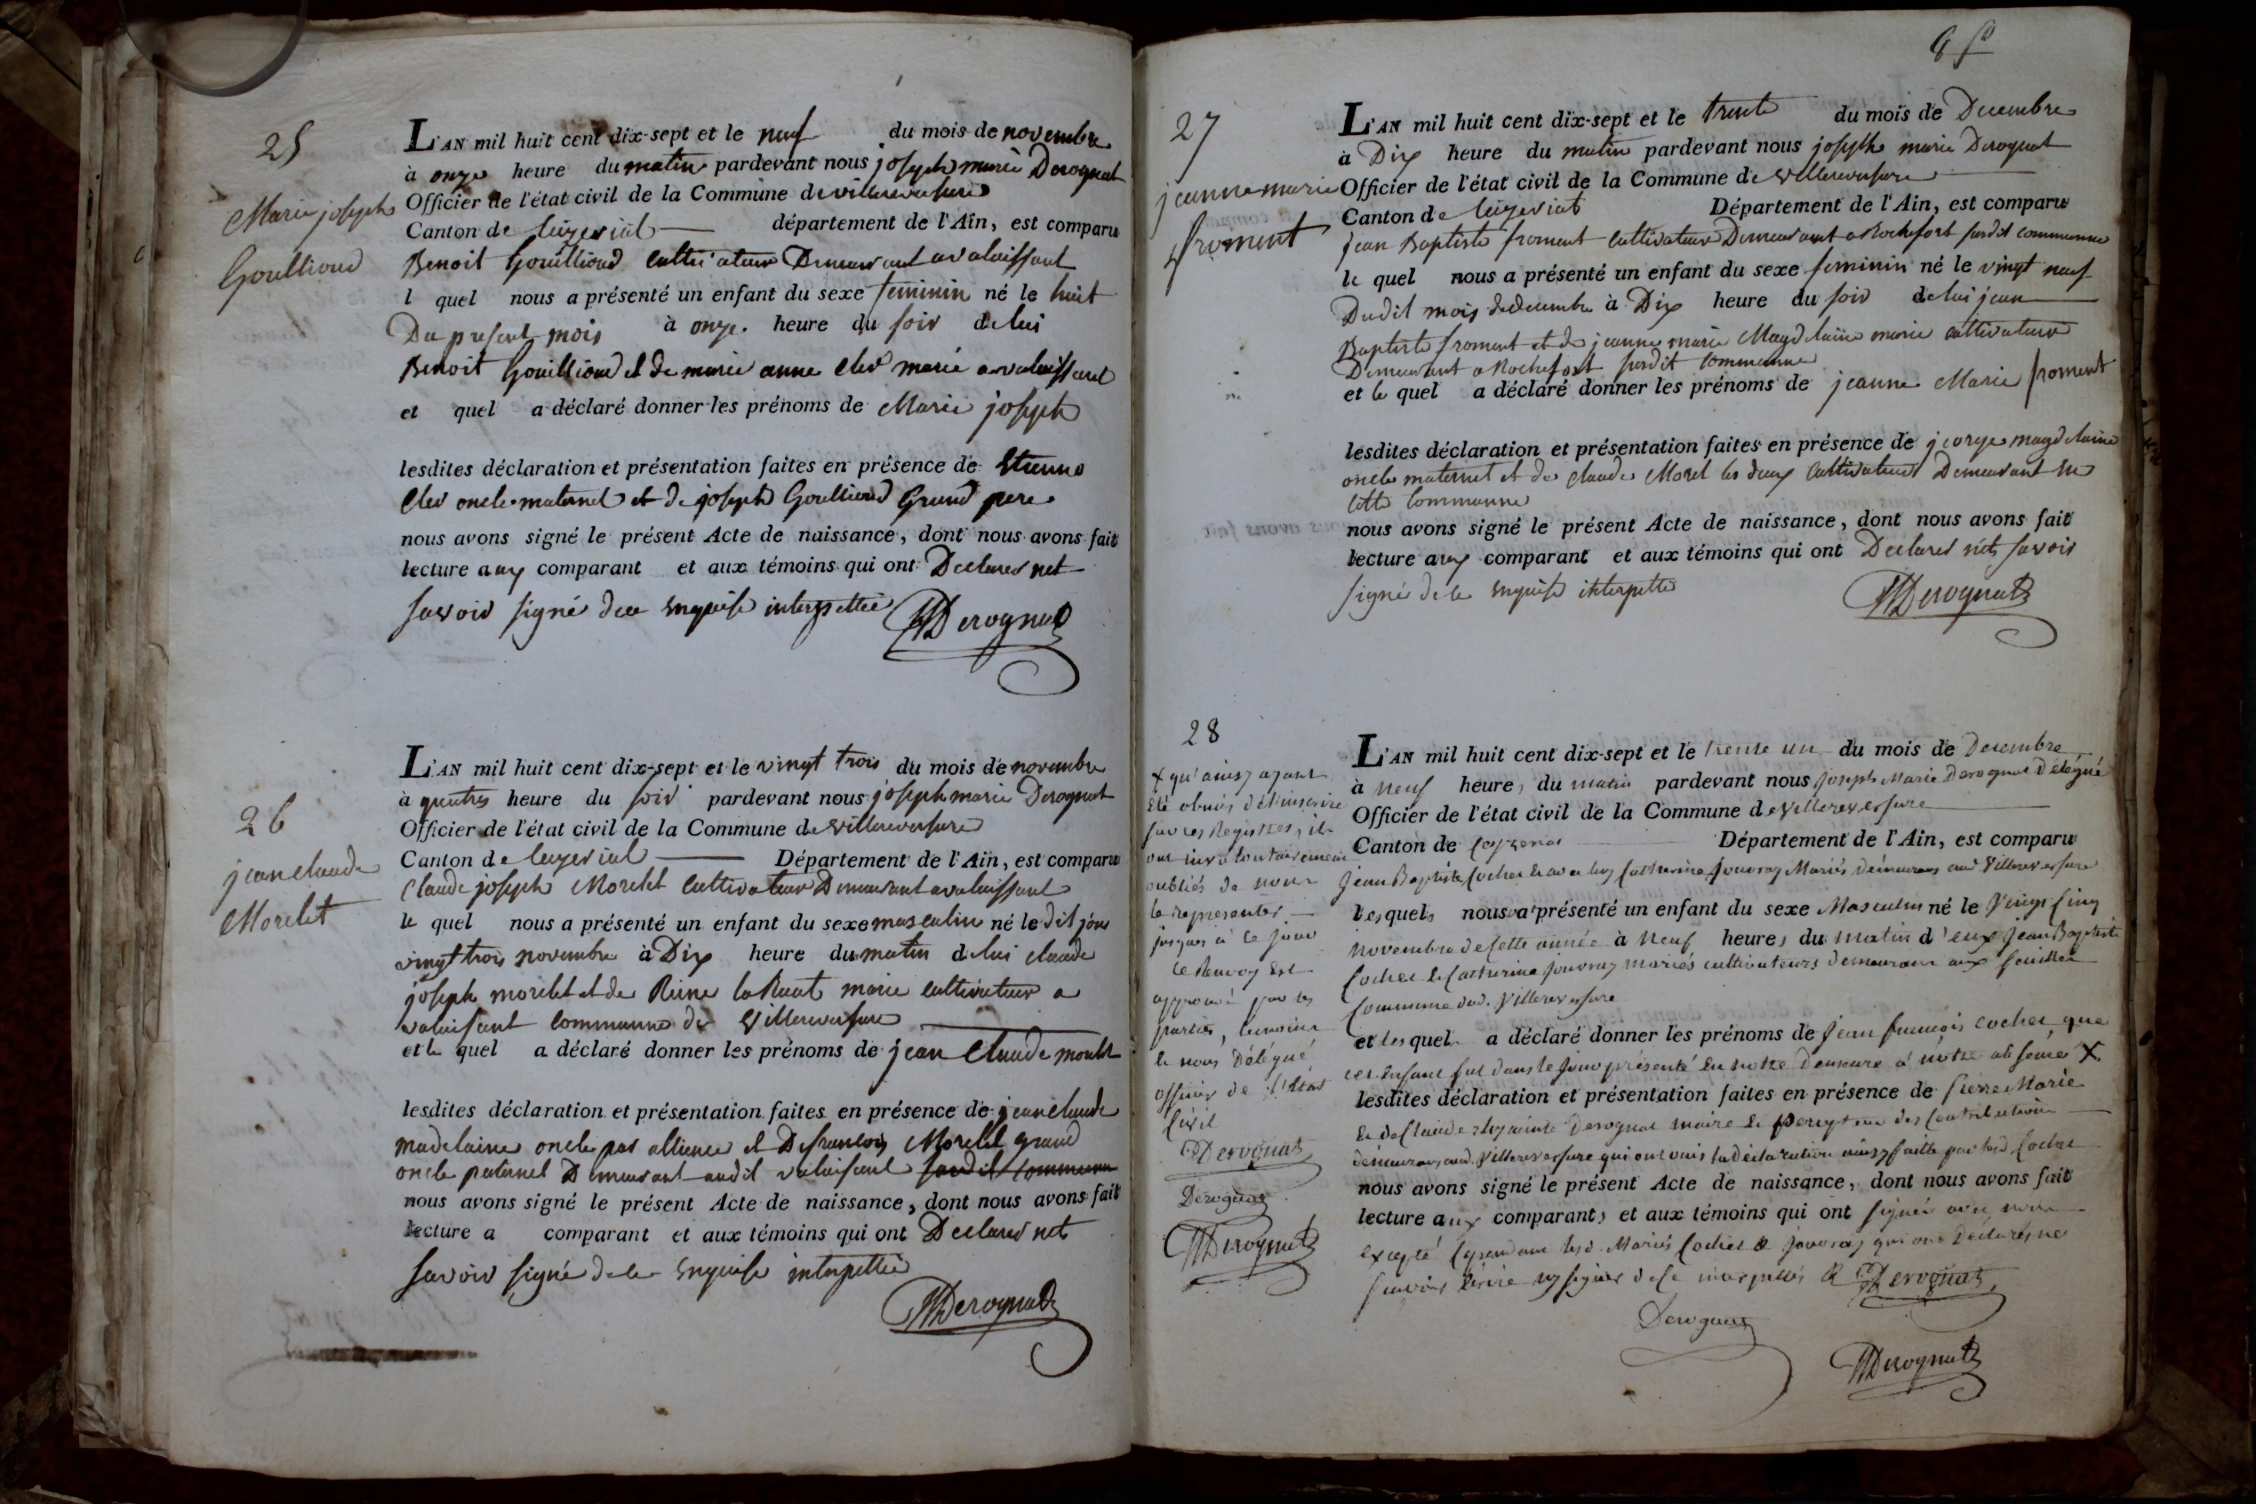 25
Marie joseph
Goullioud
L'AN mil huit cent dix-sept et le neuf du mois de novembre
à onze heure du matin pardevant nous joseph marie Derognat
Officier de l'état civil de la Commune de villereversure
Canton de Ceyzeriat département de l'Ain, est comparu
Benoit Gouillioud cultivateur Demeurant a valuissant
l quel nous a présenté un enfant du sexe feminin né le huit
Du present mois à onze heure du soir de lui
Benoit Gouillioud et de marie anne Cler marié a valuissant
et quel a déclaré donner les prénoms de Marie joseph
lesdites déclaration et présentation faites en présence de Etienne
Cler oncle maternel et de joseph Goullioud Grand pere
nous avons signé le présent Acte de naissance, dont nous avons fait
lecture aux comparant et aux témoins qui ont Declarer net
savoir signé de ce enquise interpettée
JMDerognat
26
jean claude
Morelet
L'AN mil huit cent dix-sept et le vingt trois du mois de novembre
à quatres heure du soir pardevant nous joseph marie Derognat
Officier de l'état civil de la Commune de villereversure
Canton de Ceyzeriat Département de l'Ain, est comparu
Claude joseph Morelet Cultivateur Demeurant a valuissant
le quel nous a présenté un enfant du sexe masculin né le dit jour
vingt trois novembre à Dix heure du matin de lui claude
joseph morelet et de Reine marie cultivateur a
valuissant commune de Villereversure
et le quel a déclaré donner les prénoms de jean Claude
lesdites déclaration et présentation faites en présence de jean claude
madelaine oncle par alliance et De francois Morelet grand
oncle paternel Demeurant audit valuissant susdit commune
nous avons signé le présent Acte de naissance, dont nous avons fait
lecture a comparant et aux témoins qui ont Declarer nets
savoir signé de ce enquise interpettée
JMDerognat
27
jeanne marie
froment
L'AN mil huit cent dix-sept et le trente du mois de Decembre
à Dix heure du matin pardevant nous joseph marie Derognat
Officier de l'état civil de la Commune de Villereversure
Canton de Ceyzeriat Département de l'Ain, est comparu
jean Baptiste froment Cultivateur Demeurant a Rochefort susdit commune
le quel nous a présenté un enfant du sexe feminin né le vingt neuf
Dudit mois de decembre à Dix heure du soir de lui jean
Baptiste froment et de jeanne marie Magdelaine marie cultivateur
Demeurant a Rochefort susdit commune
et le quel a déclaré donner les prénoms de jeanne Marie froment
lesdites déclaration et présentation faites en présence de jeorge magdelaine
oncle maternel et de claude Morel les deux Cultivateur Demeurant en
cette commune
nous avons signé le présent Acte de naissance, dont nous avons fait
lecture aux comparant et aux témoins qui ont Declarer nets savoir
signé de ce enquise interpettée
JMDerognat
28
L'AN mil huit cent dix-sept et le trente un du mois de Decembre
à neuf heures du matin pardevant nous joseph Marie Derognat Délégué
Officier de l'état civil de la Commune de Villereversure
Canton de Ceyzeriat Département de l'Ain, est comparu
Jean Baptiste Cochet et avec luy Catherine Jouvray Mariés demeurans aud Villereversure
lesquels nous a présenté un enfant du sexe Masculin né le Vingt Cinq
novembre de Cette année à neuf heures du matin d'eux Jean Baptiste
Cochet et Catherine Jouvray mariés cultivateurs demeurans
Commune dud. Villereversure
et les quels a déclaré donner les prénoms de Jean francois cochet, que
cet Enfant fut dans le jour présenté en notre Demeure à notre absence X
lesdites déclaration et présentation faites en présence de Pierre Marie
et de Claude Derognat maire et percepteur des Contributions
demeurans aud. Villereversure qui ont ouis la déclaration ainsy faitte par led. Cochet
nous avons signé le présent Acte de naissance, dont nous avons fait
lecture aux comparants et aux témoins qui ont signés avec nous
excepté Cependant lesd. Mariés Cochet & Jouvray qui ont Déclarés ne
scavoir Ecrire ny signer de ce interpellés
Derognat
Derognat
JMDerognat
X qu'ainsy ayant
été obmis de l'inscrire
sur ces Registres, ils
ont involontairement
oubliés de nous
le représenter
jusques à ce jour
Ce Renvoy est
approuvé par les
parties, temoins
et nous Délégué
officier de l'Etat
Civil
Derognat
Derognat
JMDerognat